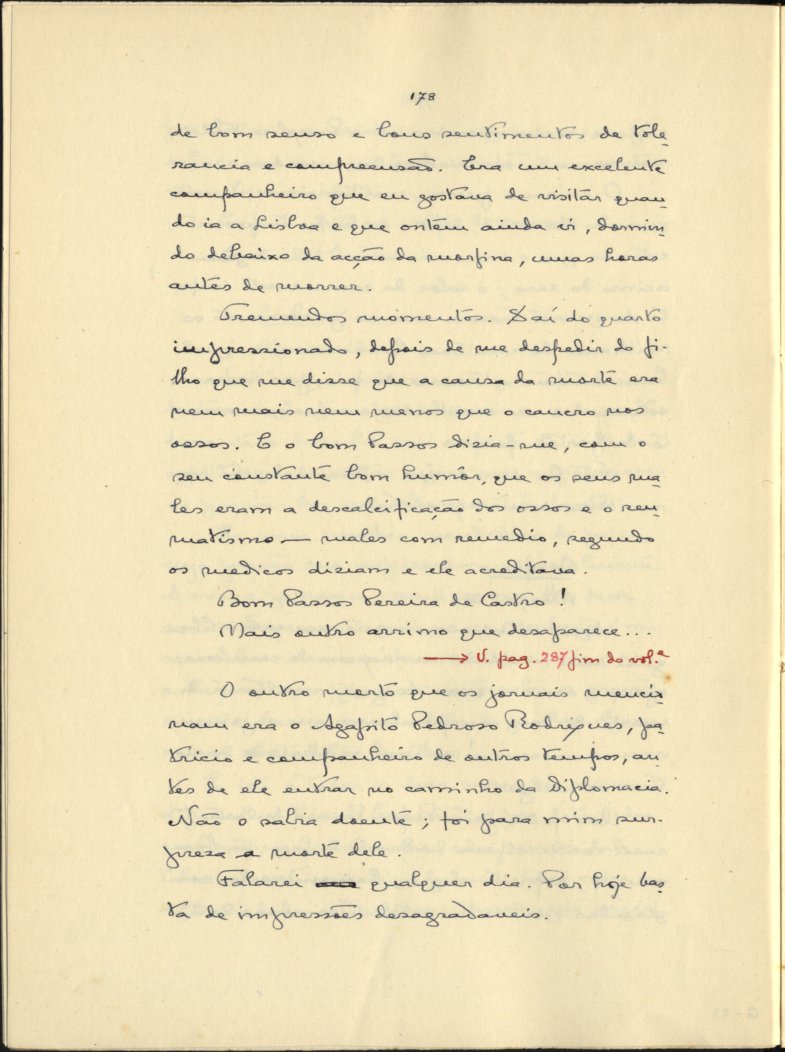 178
de bom senso e bons sentimentos de tole-
rancia e compreensão. Era um excelente
companheiro que eu gostava de visitar quan-
do ia a Lisboa e que ontem ainda vi, dormin-
do debaixo da acção da morfina, umas horas
antes de morrer.
Tremendos momentos. Saí do quarto
impressionado, depois de me despedir do fi-
lho que me disse que a causa da morte era
nem mais nem menos que o cancro nos
ossos. E o bom Passos dizia-me, com o
seu constante bom humôr, que os seus ma-
les eram a descalcificação dos ossos e o reu-
matismo — males com remedio, segundo
os medicos diziam e ele acreditava.
Bom Passos Pereira de Castro!
Mais outro arrimo que desaparece...
→ V. pag. 287 fim do vol.e
O outro morto que os jornais menci-
nam era o Agapito Pedroso Rodrigues, pa-
tricio e companheiro de outros tempos, an-
tes de ele entrar no caminho da Diplomacia.
Não o sabia doente; foi para mim sur-
preza a morte dele.
Falarei qualquer dia. Por hoje bas-
ta de impressões desagradaveis.